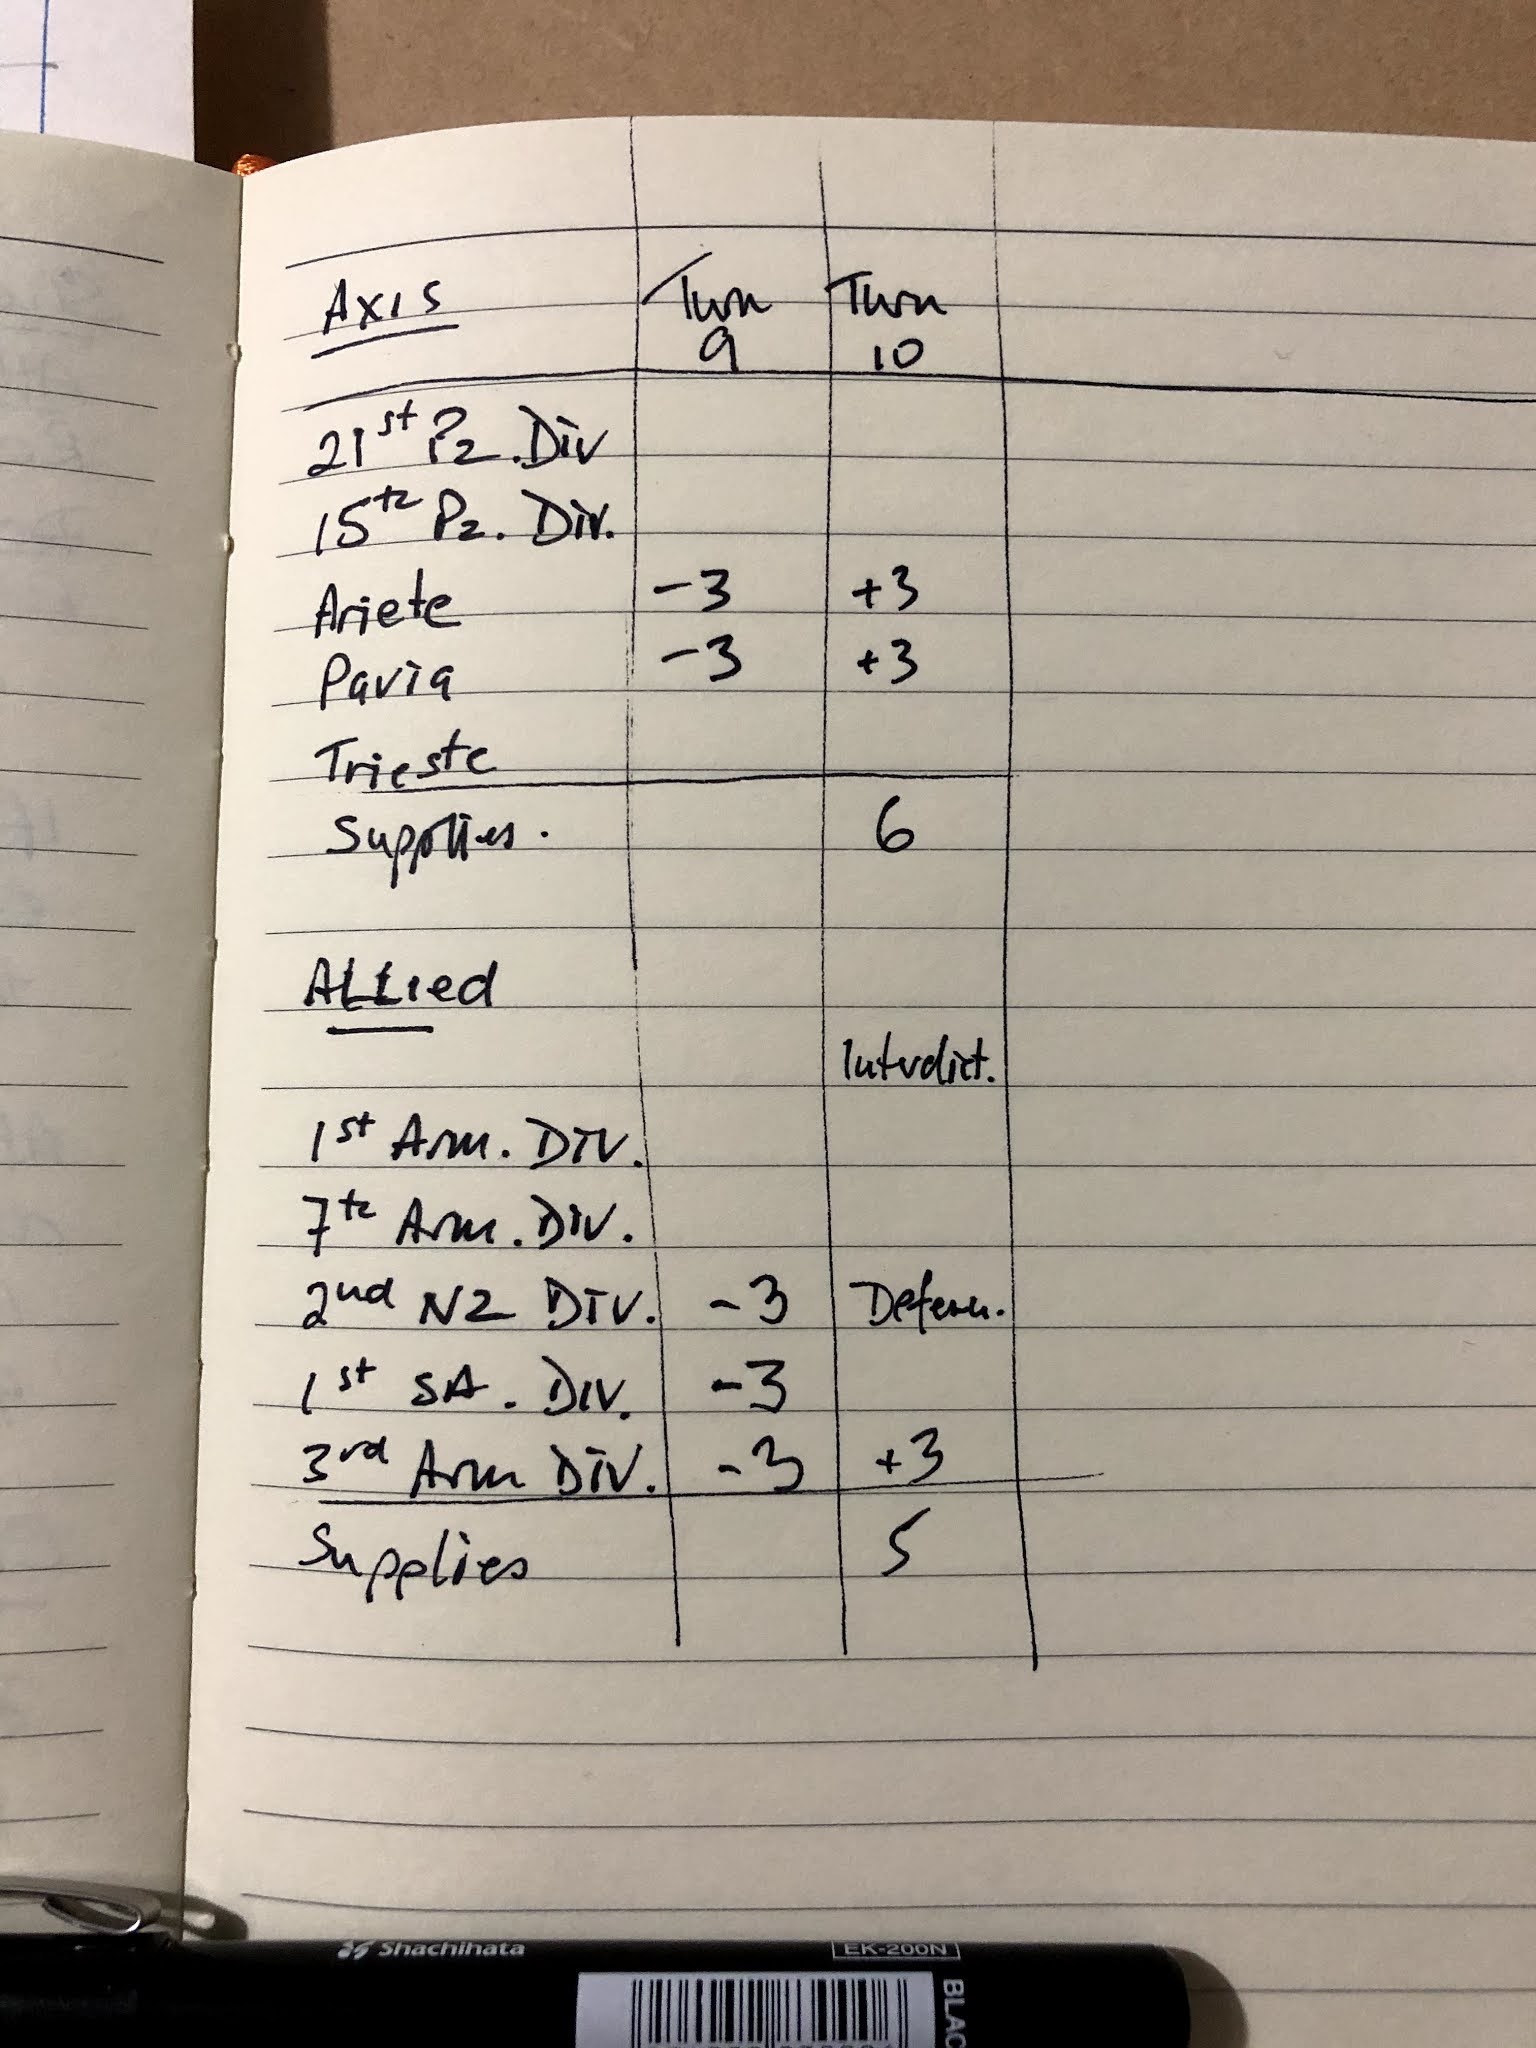 AXIS Turn 9 Turn 10
21st Pz. Div
15th Pz. Div.
Ariete -3 +3
Pavia -3 +3
Trieste
Supplies. 6
ALLied
Interdict.
1st Arm. DIV.
7th Arm. Div.
2nd NZ DIV. -3 Defen.
1st SA. DIV. -3
3rd Arm DIV. -3 +3
Supplies 5
Shachihata EK-200N
BLAC